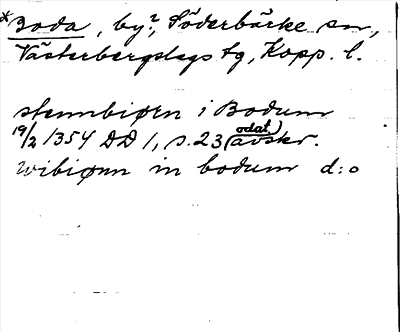 *Boda, by?, Söderbärke sn,
Västerbergslags tg, Kopp. l.
stennbiørn i Bodum
19/2 1354 DD 1, s. 23 (odat. avskr.)
wibiønn in bodum d:o